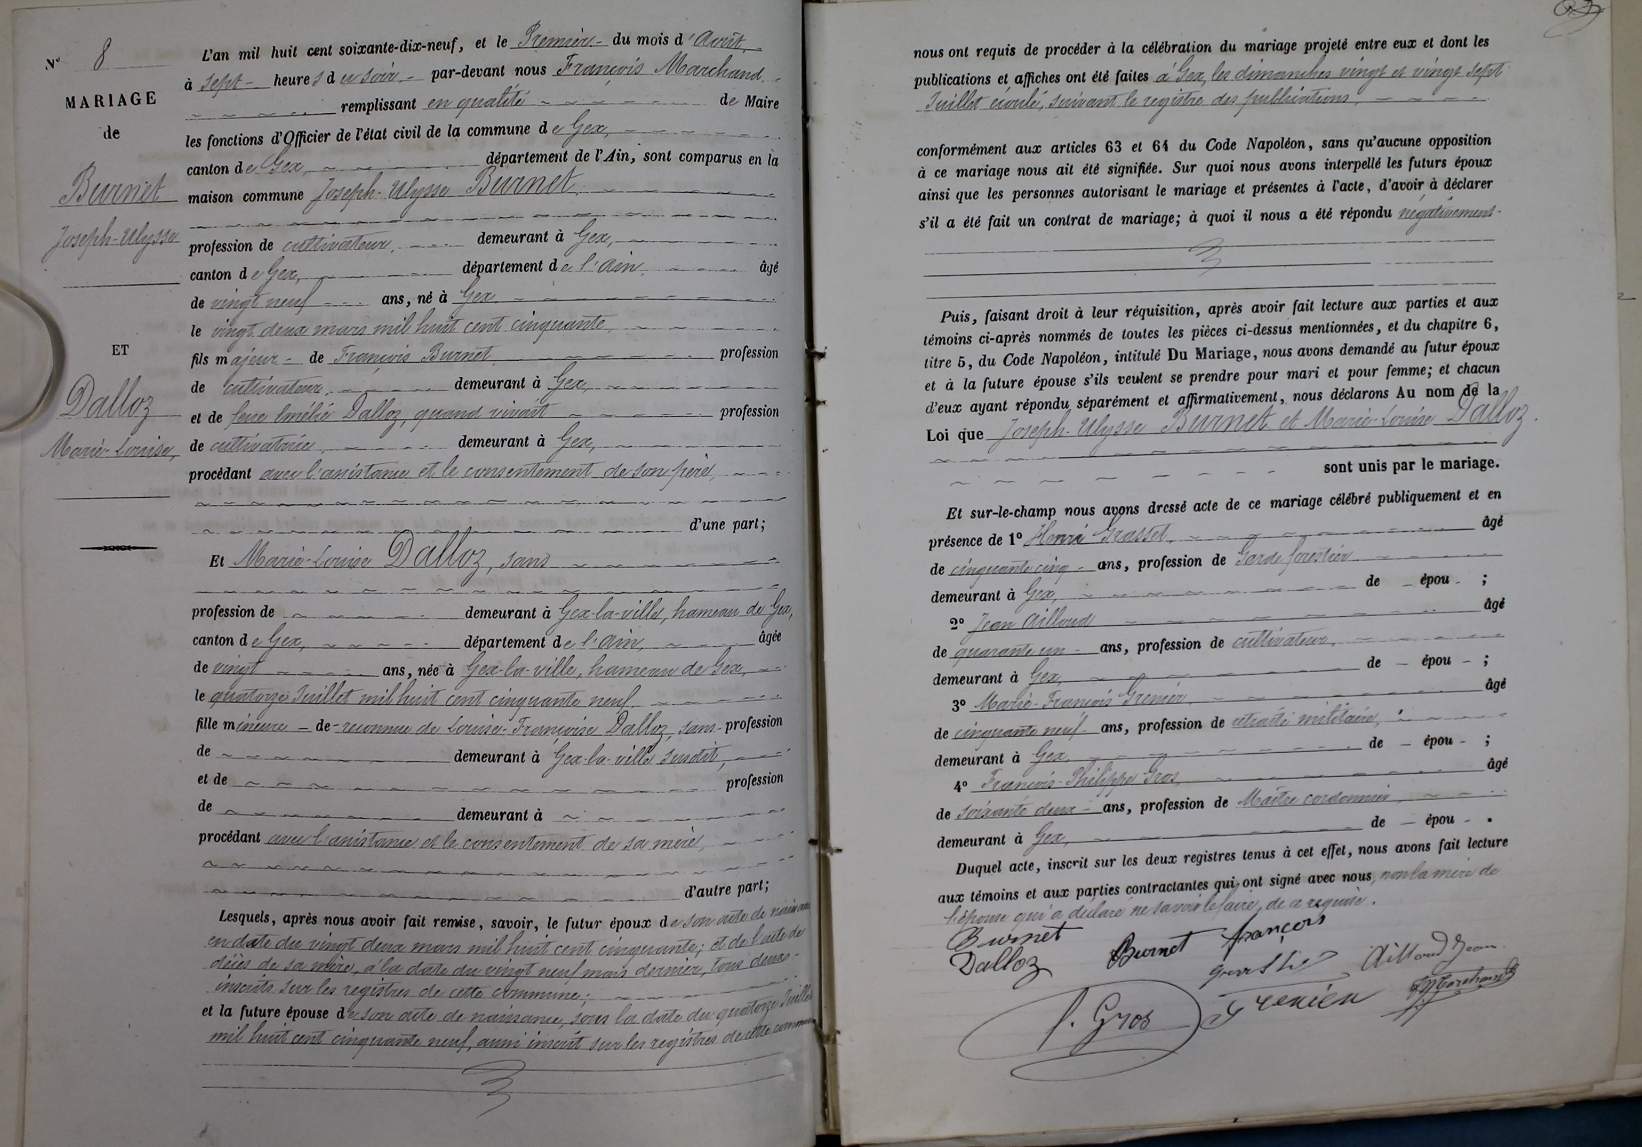 N° 8
MARIAGE
de
Burnet
Joseph-Ulysse
ET
Dalloz
Marie-Louise,
L'an mil huit cent soixante-dix-neuf, et le Premier du mois d'Août,
à sept heures du soir par-devant nous François Marchand
remplissant en qualité de Maire
les fonctions d'Officier de l'état civil de la commune de Gex,
canton de Gex, département de l'Ain, sont comparus en la
maison commune Joseph-Ulysse Burnet,
profession de cultivateur, demeurant à Gex,
canton de Gex, département de l'Ain, âgé
de vingt neuf ans, né à Gex
le vingt deux mars mil huit cent cinquante,
fils majeur de François Burnet profession
de cultivateur, demeurant à Gex,
et de feue Amélie Dalloz, quand vivait profession
de cultivatrice, demeurant à Gex,
procédant avec l'assistance et le consentement de son père,
d'une part;
Et Marie-Louise Dalloz, sans
profession de demeurant à Gex-la-ville, hameau de Gex,
canton de Gex, département de l'Ain, âgée
de vingt ans, née à Gex-la-ville, hameau de Gex,
le quatorze Juillet mil huit cent cinquante neuf,
fille mineure de reconnue de Louise-Françoise Dalloz, sans profession
de demeurant à Gex-la-ville susdit,
et de profession
de demeurant à
procédant avec l'assistance et le consentement de sa mère,
d'autre part;
Lesquels, après nous avoir fait remise, savoir, le futur époux de son acte de naissance
en date du vingt deux mars mil huit cent cinquante; et de l'acte de
décès de sa mère, à la date du vingt neuf mars dernier, tous deux
inscrits sur les registres de cette commune;
et la future épouse de son acte de naissance, sous la date du quatorze Juillet
mil huit cent cinquante neuf, aussi inscrit sur les registres de cette commune
nous ont requis de procéder à la célébration du mariage projeté entre eux et dont les
publications et affiches ont été faites à Gex, les dimanches vingt et vingt sept
Juillet écoulé, suivant le registre des publications,
conformément aux articles 63 et 64 du Code Napoléon, sans qu'aucune opposition
à ce mariage nous ait été signifiée. Sur quoi nous avons interpellé les futurs époux
ainsi que les personnes autorisant le mariage et présentes à l'acte, d'avoir à déclarer
s'il a été fait un contrat de mariage; à quoi il nous a été répondu négativement.
Puis, faisant droit à leur réquisition, après avoir fait lecture aux parties et aux
témoins ci-après nommés de toutes les pièces ci-dessus mentionnées, et du chapitre 6,
titre 5, du Code Napoléon, intitulé Du Mariage, nous avons demandé au futur époux
et à la future épouse s'ils veulent se prendre pour mari et pour femme; et chacun
d'eux ayant répondu séparément et affirmativement, nous déclarons Au nom de la
Loi que Joseph-Ulysse Burnet et Marie-Louise Dalloz.
sont unis par le mariage.
Et sur-le-champ nous avons dressé acte de ce mariage célébré publiquement et en
présence de 1° Henri Grasset, âgé
de cinquante cinq ans, profession de Garde forestier
demeurant à Gex, de épou ;
2° Jean Ailloud âgé
de quarante un ans, profession de cultivateur,
demeurant à Gex, de épou ;
3° Marie-François Grenier, âgé
de cinquante neuf ans, profession de retraité militaire,
demeurant à Gex, de épou ;
4° François-Philippe Gros, âgé
de soixante deux ans, profession de Maître cordonnier,
demeurant à Gex, de épou .
Duquel acte, inscrit sur les deux registres tenus à cet effet, nous avons fait lecture
aux témoins et aux parties contractantes qui ont signé avec nous, non la mère de
l'épouse qui a déclaré ne savoir le faire, de ce requise.
Burnet
Burnet françois
Dalloz
Ailloud Jean
Grenier
F. Marchand
f. Gros